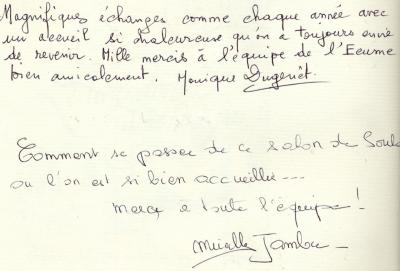 Magnifiques échanges comme chaque année avec
un accueil si chaleureuse qu'on a toujours envie
de revenir. Mille mercis à l'équipe de l'Ecume
bien amicalement. Monique Dugenêt.
Comment se passer de ce salon de Soula
ou l'on est si bien accueillis ---
merci à toute l'équipe !
Mireille Jambou